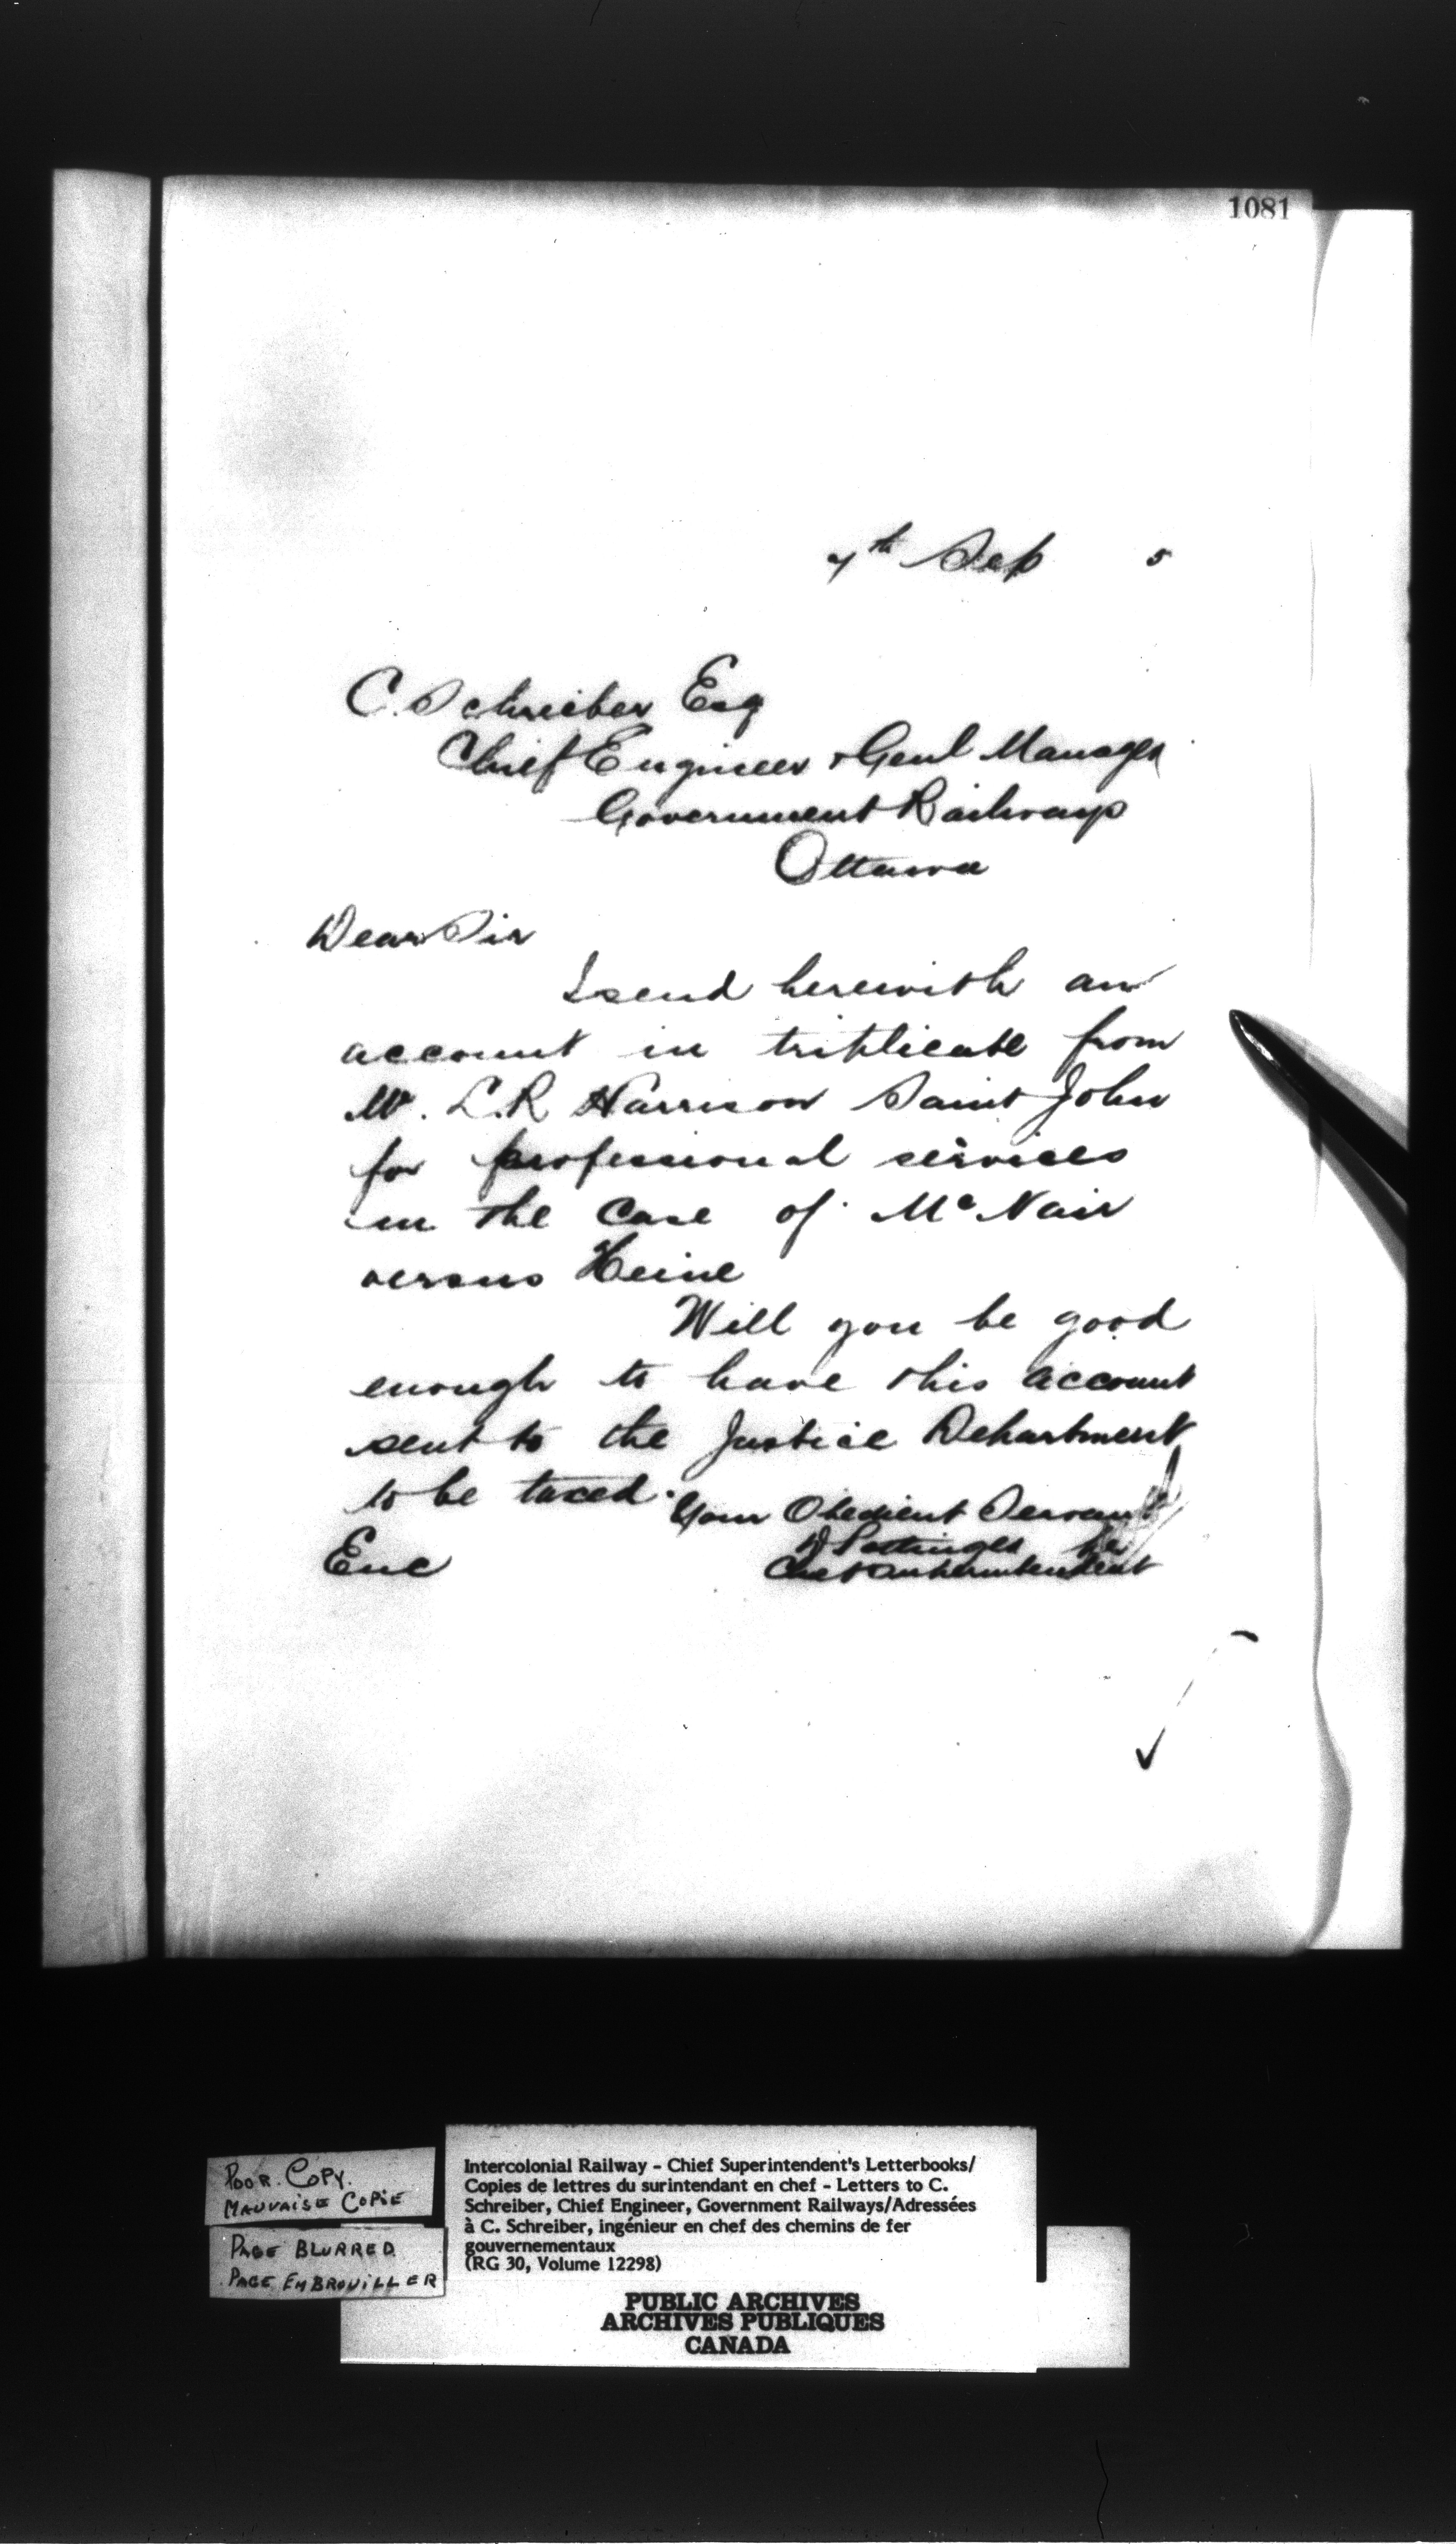 1081
7th Sep 5
C. Schreiber Esq
Chief Engineer & Genl Manager
Government Railways
Ottawa
Dear Sir
I send herewith an
account in triplicate from
Mr. C.R Harrison Saint John
for professional services
in the case of McNair
versus Heine
Will you be good
enough to have this account
sent to the Justice Department
to be taxed.
Your Obedient Servant
D Pottinger
Chief Superintendent
Enc
POOR COPY.
MAUVAISE COPIE
PAGE BLURRED
PAGE EMBROUILLER
Intercolonial Railway - Chief Superintendent's Letterbooks/
Copies de lettres du surintendant en chef - Letters to C.
Schreiber, Chief Engineer, Government Railways/Adressées
à C. Schreiber, ingénieur en chef des chemins de fer
gouvernementaux
(RG 30, Volume 12298)
PUBLIC ARCHIVES
ARCHIVES PUBLIQUES
CANADA